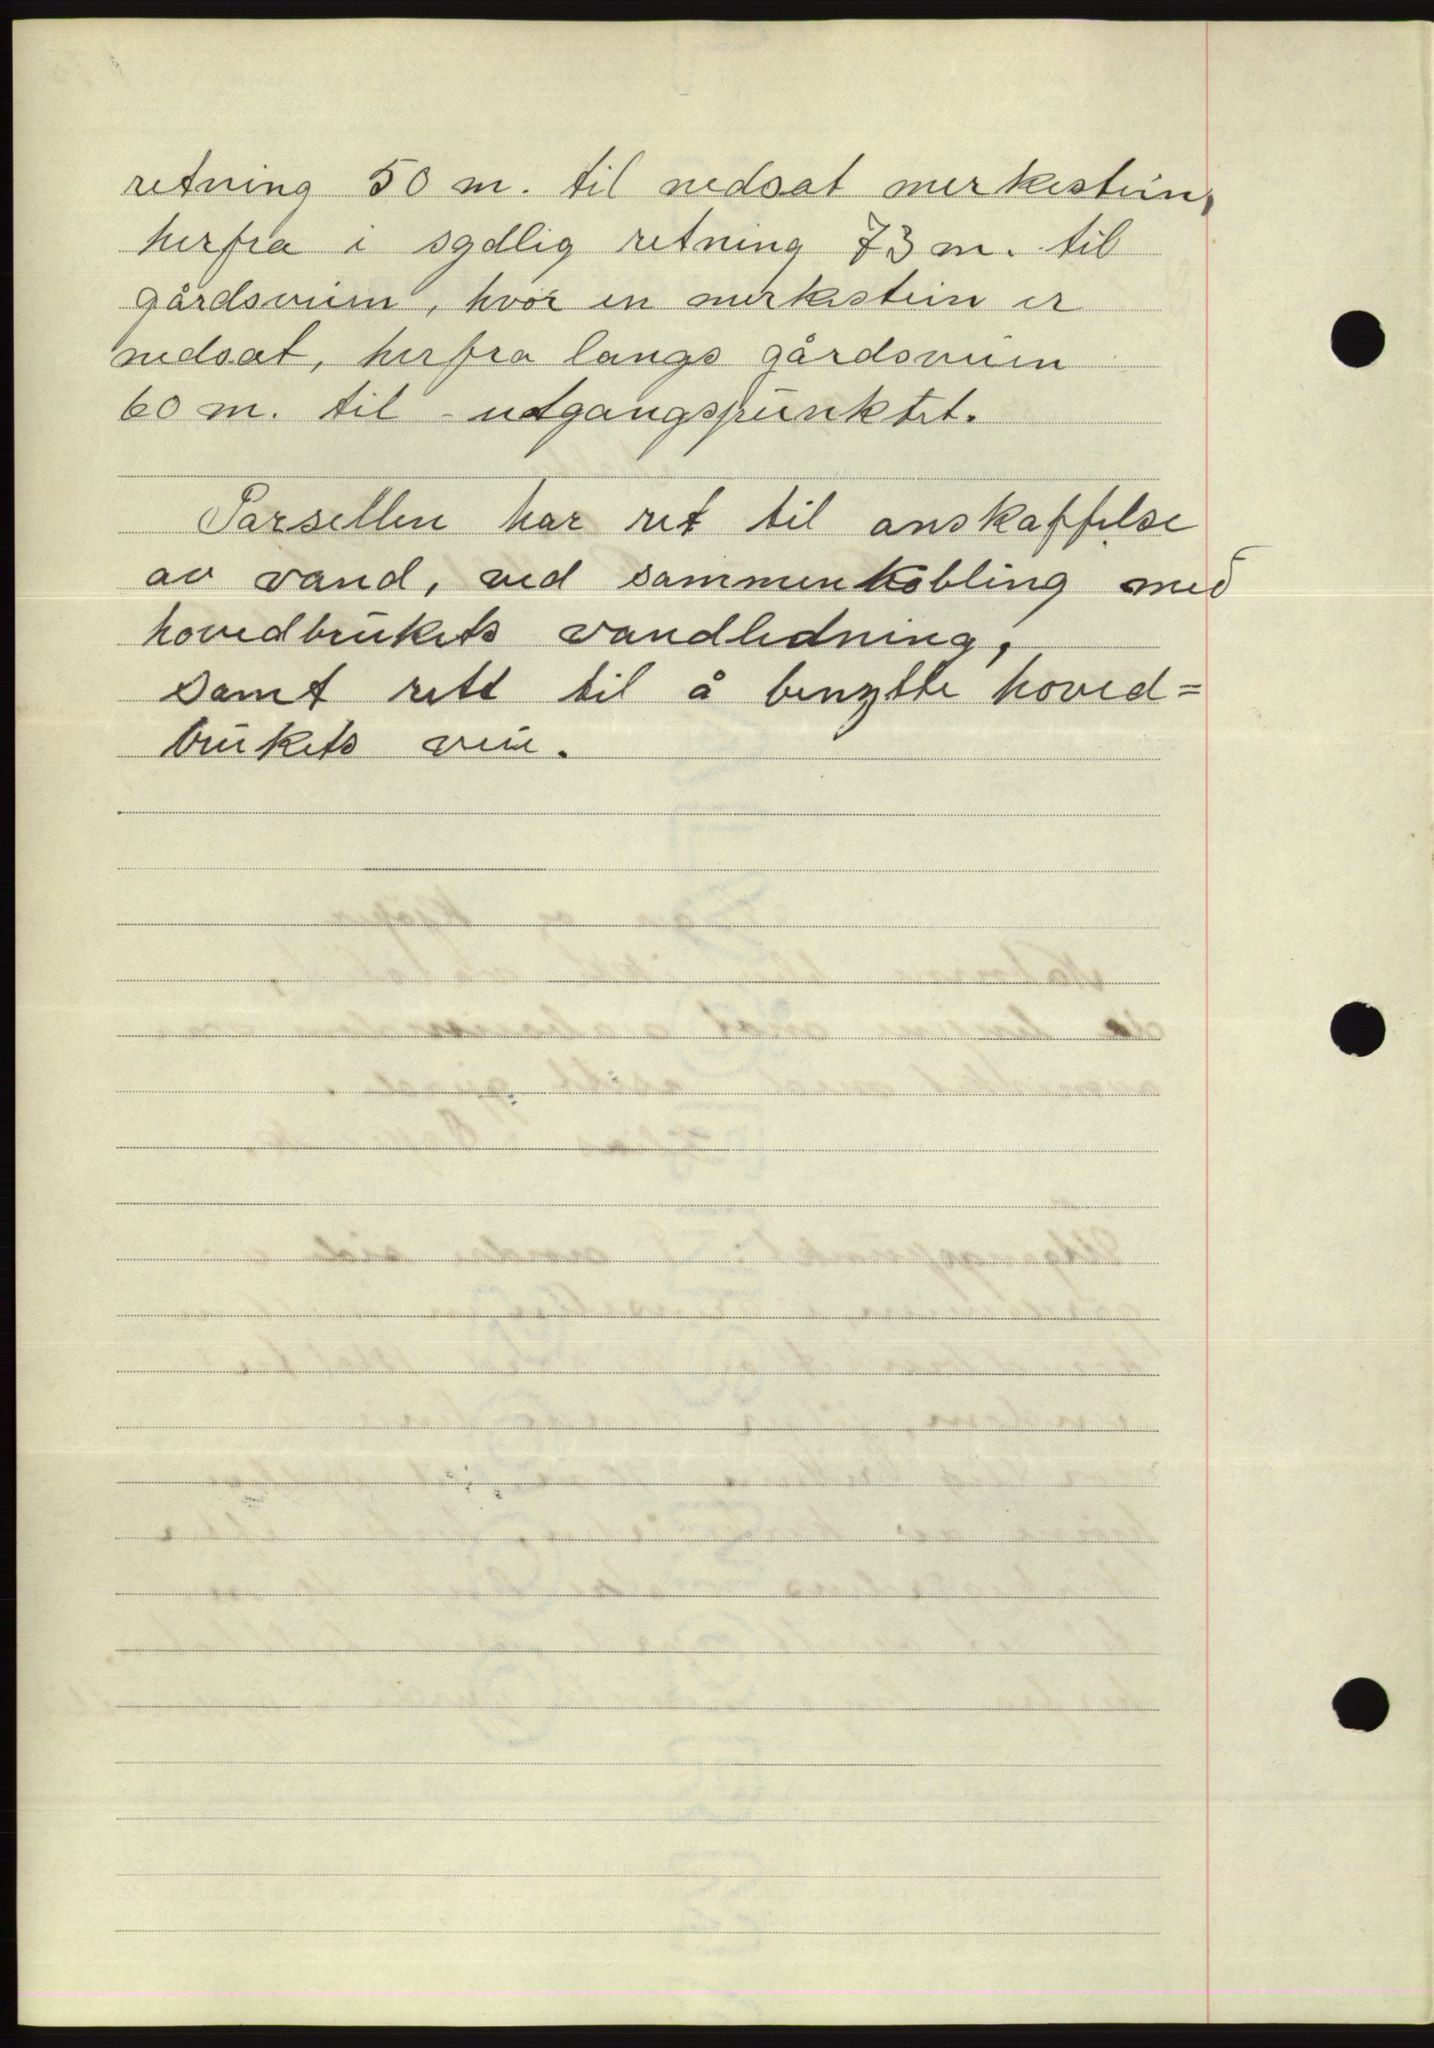 retning 50 m. til nedsat merkestein,
herfra i sydlig retning 73 m. til
gårdsveien, hvor en merkestein er
nedsat, herfra langs gårdsveien
60 m. til utgangspunktet.
Parsellen har ret til anskaffelse
av vand, ved sammenkobling med
hovedbrukets vandledning,
samt rett til å benytte hoved=
brukets veie.